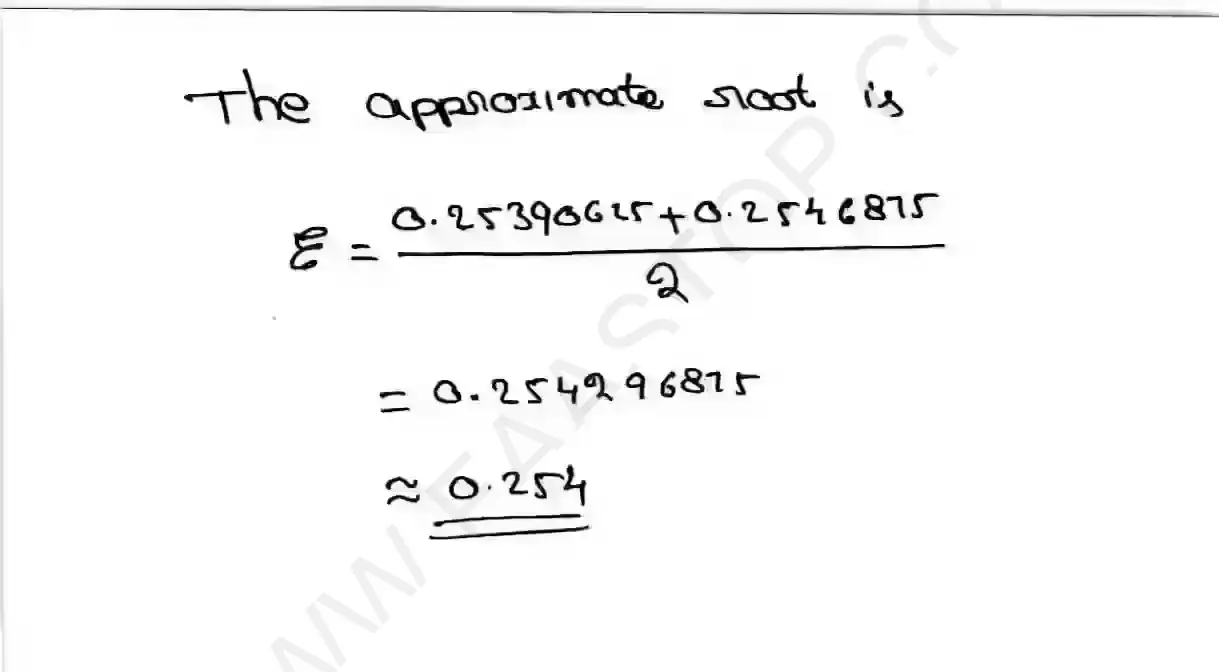 The approximate root is
ξ = (0.25390625 + 0.2546875) / 2
= 0.254296875
≈ 0.254